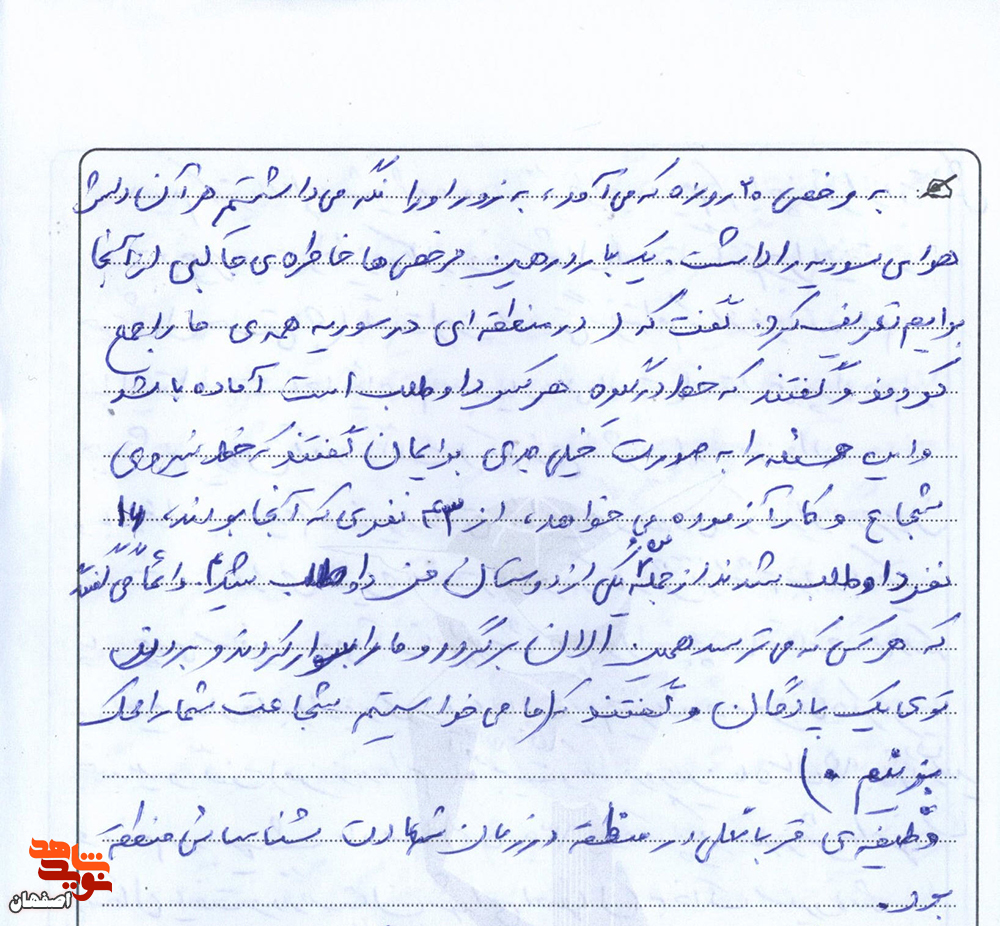 به مرخصی ۲۰ روزه که می‌آمد، به زور او را نگه می‌داشتیم هر آن دلش
هوای سوریه را داشت. یک بار در همین مرخصی‌ها خاطره‌ی جالبی از آنجا
برایم تعریف کرد. گفت که (در منطقه‌ای در سوریه همه‌ی ما را جمع
کردند و گفتند که خطر در گروه هر کس داوطلب است آماده باشد
و این مسئله را به صورت خیلی جدی برایمان گفتند که خط نیروی
شجاع و کارآزموده می‌خواهد، از ۴۳ نفری که آنجا بودند، ۱۴
نفر داوطلب شدند از جمله من و یکی از دوستان من داوطلب شدیم. دائماً می‌گفتند
که هر کس که می‌ترسد همین الان برگردد و ما را سوار کردند و بردند
توی یک پادگان و گفتند که (ما می‌خواستیم شجاعت شما را محک
بزنیم.)
وظیفه‌ی قربانعلی در منطقه در زمان شهادت شناسایی منطقه
بود.
نوید شاهد
اصفهان